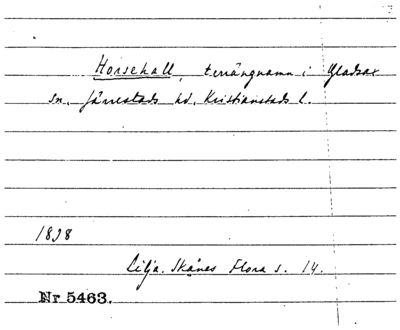 Horsehall, terrängnamn i Gladsax
sn, Järrestads hd, Kristianstads l.
1838
Lilja. Skånes Flora s. 14.
Nr 5463.